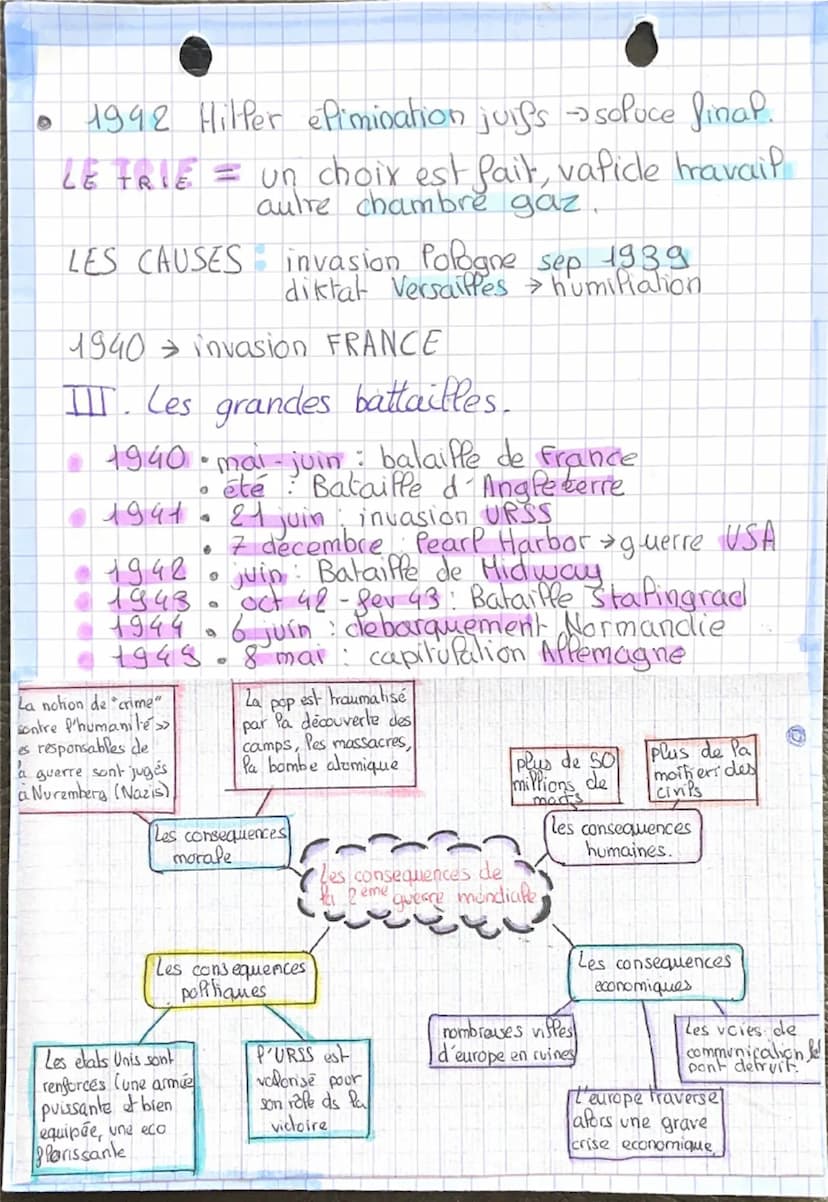 • 1942 Hitler élimination juifs → soluce final.
LE TRIE = un choix est fait, valide travail
autre chambre gaz.
LES CAUSES : invasion Pologne sep 1939
diktat Versailles → humiliation
1940 → invasion FRANCE
III. Les grandes battailles.
• 1940 • mai-juin : bataille de France
• été : Bataille d'Angleterre
• 1941 • 21 juin : invasion URSS
• 7 décembre : Pearl Harbor → guerre USA
• 1942 • juin : Bataille de Midway
• 1943 • oct 42 - fev 43 : Bataille Stalingrad
• 1944 • 6 juin : debarquement Normandie
• 1945 • 8 mai : capitulation Allemagne
La notion de "crime"
contre l'humanité >>
es responsables de
la guerre sont jugés
à Nuremberg (Nazis)
La pop est traumatisé
par la découverte des
camps, les massacres,
la bombe atomique
plus de 50
millions de
morts
plus de la
moitieri des
civils
Les consequences
morale
les consequences
humaines.
Les consequences de
la 2ème guerre mondiale
Les consequences
politiques
Les consequences
economiques
Les etats Unis sont
renforcés (une armée
puissante et bien
equipée, une eco
florissante
l'URSS est
valorisé pour
son rôle ds la
victoire
nombreuses villes
d'europe en ruines
Les voies de
communication
pont detruit.
L'europe traverse
alors une grave
crise economique